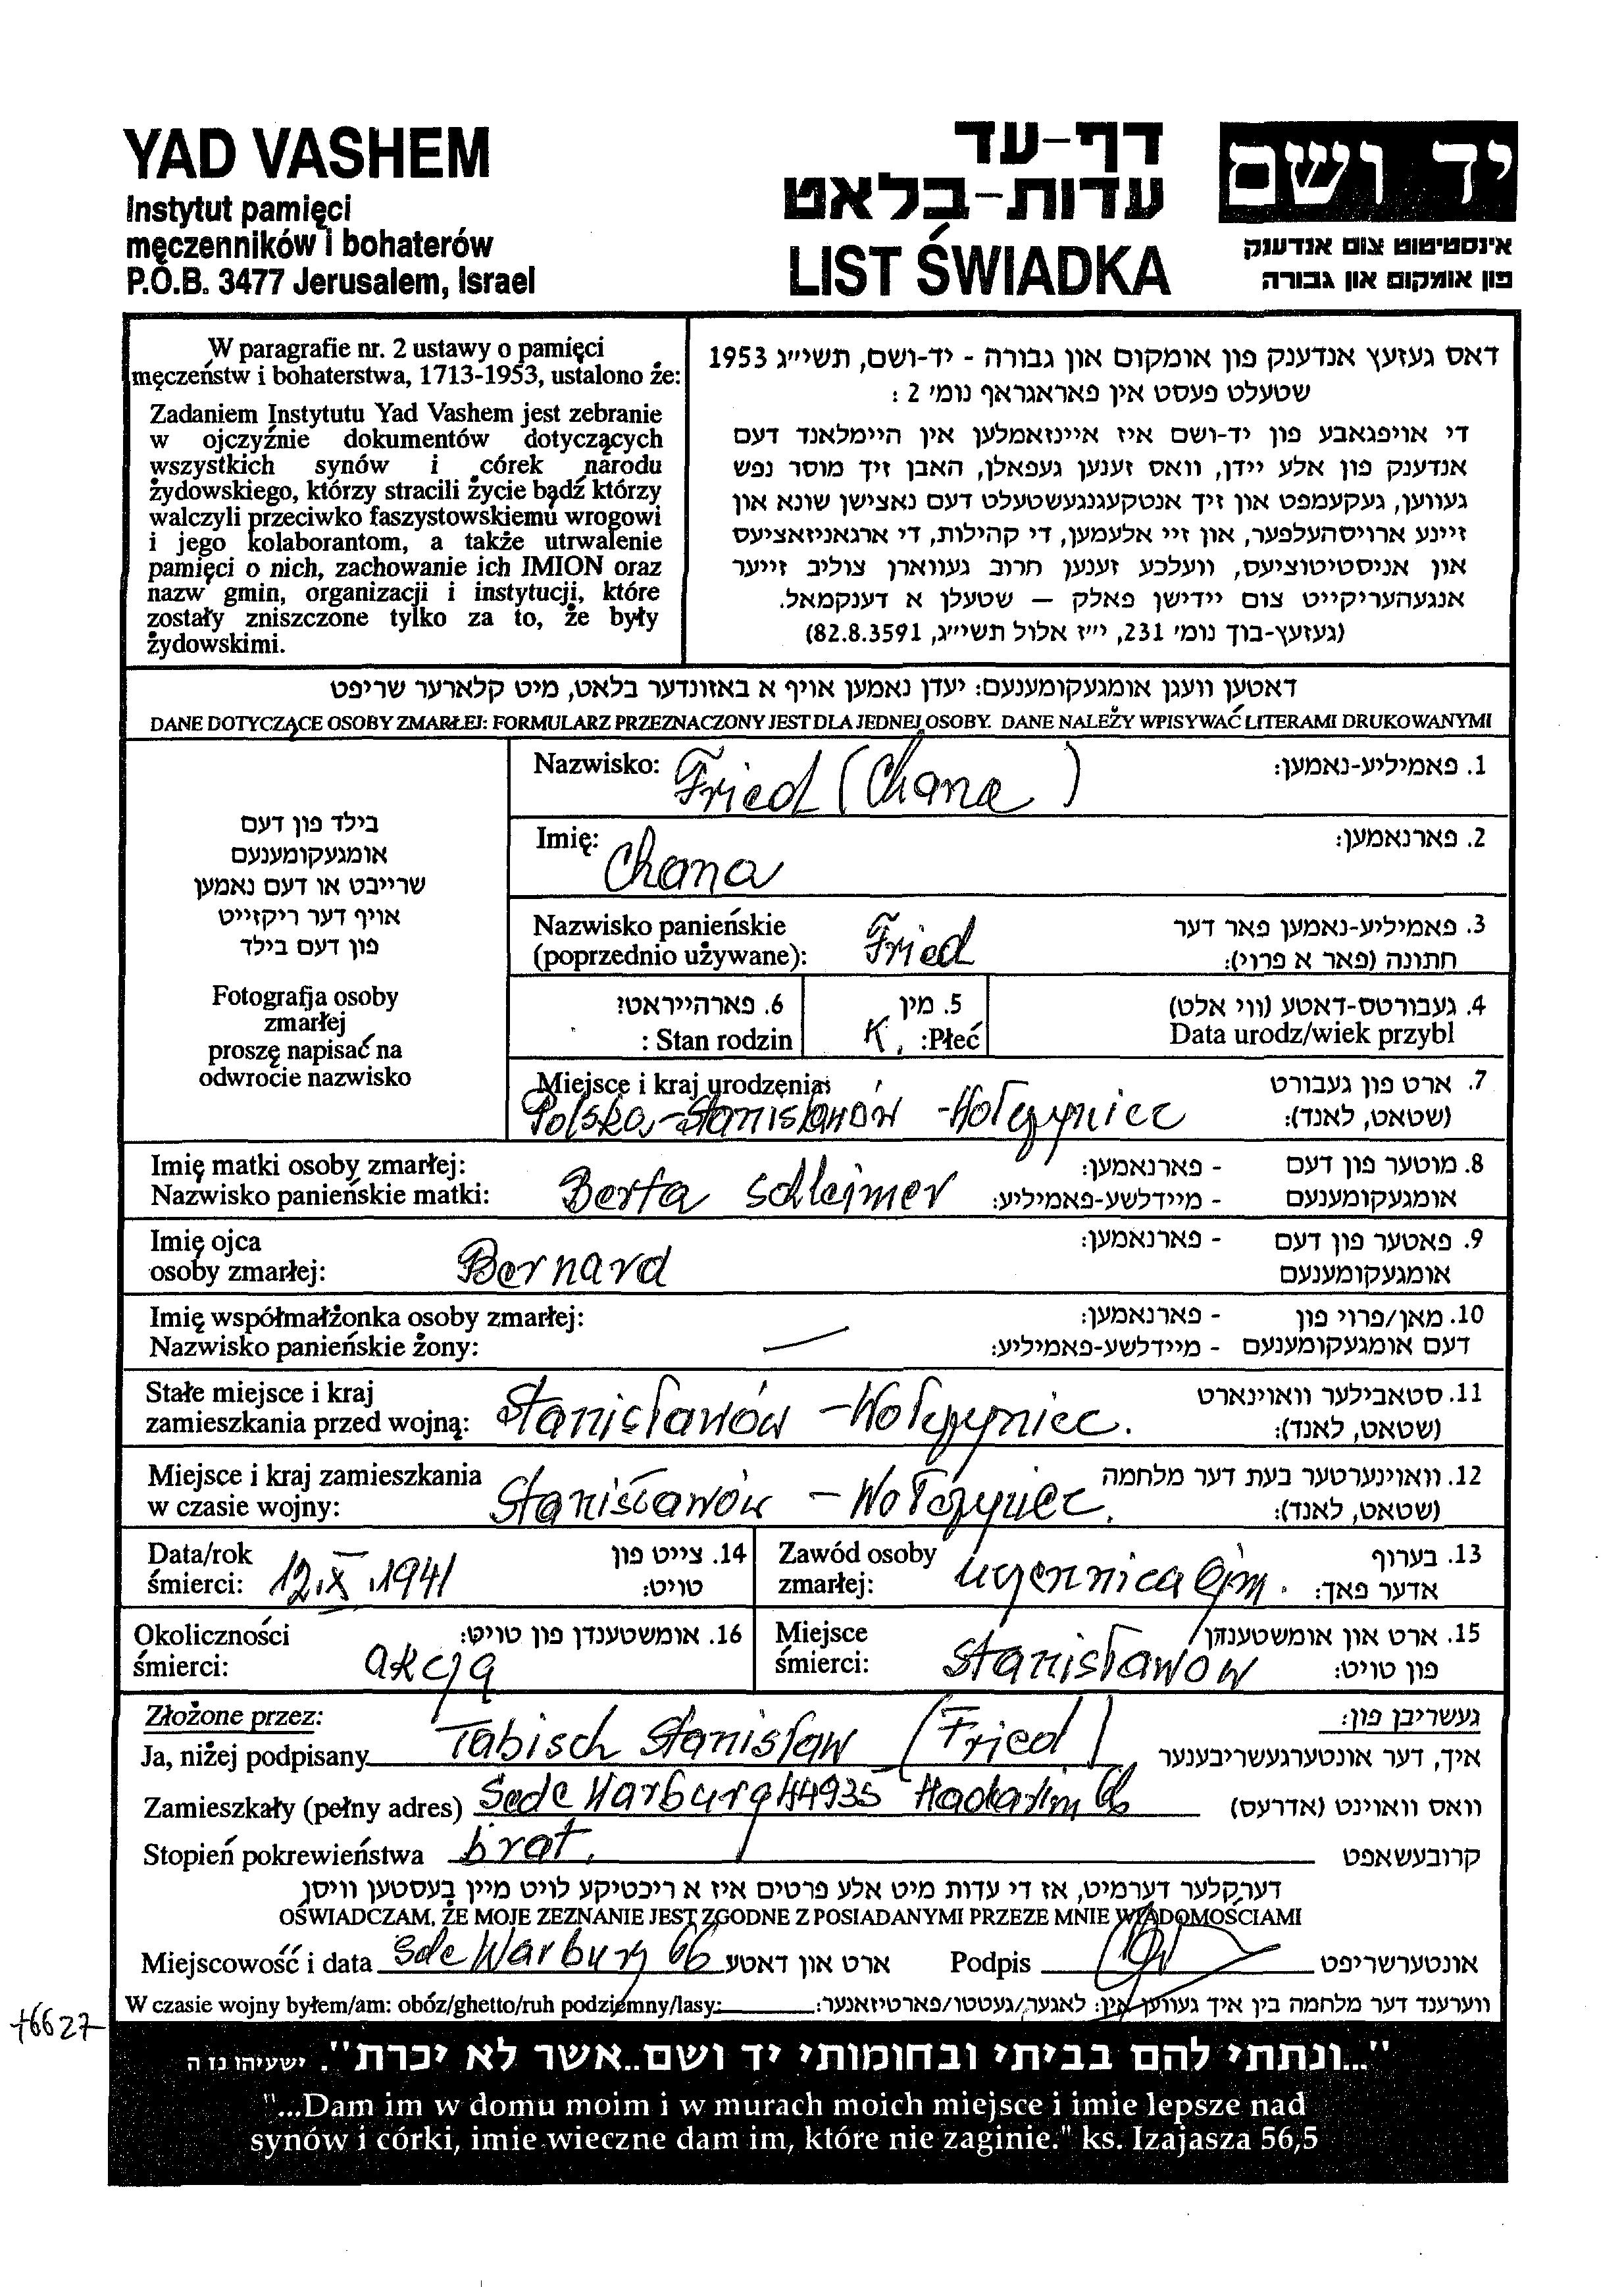 YAD VASHEM
Instytut pamięci
męczenników i bohaterów
P.O.B. 3477 Jerusalem, Israel
דף-עד
עדות-בלאט
LIST ŚWIADKA
יד ושם
אינסטיטוט צום אנדענק
פון אומקום און גבורה
W paragrafie nr. 2 ustawy o pamięci
męczeństw i bohaterstwa, 1713-1953, ustalono że:
Zadaniem Instytutu Yad Vashem jest zebranie
w ojczyźnie dokumentów dotyczących
wszystkich synów i córek narodu
żydowskiego, którzy stracili życie bądź którzy
walczyli przeciwko faszystowskiemu wrogowi
i jego kolaborantom, a także utrwalenie
pamięci o nich, zachowanie ich IMION oraz
nazw gmin, organizacji i instytucji, które
zostały zniszczone tylko za to, że były
żydowskimi.
דאס געזעץ אנדענק פון אומקום און גבורה - יד-ושם, תשי״ג 1953
שטעלט פעסט אין פאראגראף נומ׳ 2 :
די אויפגאבע פון יד-ושם איז איינזאמלען אין היימלאנד דעם
אנדענק פון אלע יידן, וואס זענען געפאלן, האבן זיך מוסר נפש
געווען, געקעמפט און זיך אנטקעגנגעשטעלט דעם נאצישן שונא און
זיינע ארויסהעלפער, און זיי אלעמען, די קהילות, די ארגאניזאציעס
און אניסטיטוציעס, וועלכע זענען חרוב געווארן צוליב זייער
אנגעהעריקייט צום יידישן פאלק – שטעלן א דענקמאל.
(געזעץ-בוך נומ׳ 231, י״ז אלול תשי״ג, 82.8.3591)
דאטען וועגן אומגעקומענעם: יעדן נאמען אויף א באזונדער בלאט, מיט קלארער שריפט
DANE DOTYCZĄCE OSOBY ZMARŁEJ: FORMULARZ PRZEZNACZONY JEST DLA JEDNEJ OSOBY. DANE NALEŻY WPISYWAĆ LITERAMI DRUKOWANYMI
בילד פון דעם
אומגעקומענעם
שרייבט או דעם נאמען
אויף דער ריקזייט
פון דעם בילד
Fotografja osoby
zmarłej
proszę napisać na
odwrocie nazwisko
Nazwisko: Fried (Chana) 1. פאמיליע-נאמען:
Imię: Chana 2. פארנאמען:
Nazwisko panieńskie 3. פאמיליע-נאמען פאר דער
(poprzednio używane): Fried חתונה (פאר א פרוי):
6. פארהייראט? 5. מין 4. געבורטס-דאטע (ווי אלט)
: Stan rodzin K. :Płeć Data urodz/wiek przybl
Miejsce i kraj urodzenia: 7. ארט פון געבורט
Polska-Stanisławów -Wołczyniec (שטאט, לאנד):
Imię matki osoby zmarłej: - פארנאמען: 8. מוטער פון דעם
Nazwisko panieńskie matki: Berta Schleimer - מיידלשע-פאמיליע: אומגעקומענעם
Imię ojca - פארנאמען: 9. פאטער פון דעם
osoby zmarłej: Bernard אומגעקומענעם
Imię współmałżonka osoby zmarłej: - פארנאמען: 10. מאן/פרוי פון
Nazwisko panieńskie żony: — - מיידלשע-פאמיליע: דעם אומגעקומענעם
Stałe miejsce i kraj 11. סטאבילער וואוינארט
zamieszkania przed wojną: Stanisławów -Wołczyniec. (שטאט, לאנד):
Miejsce i kraj zamieszkania 12. וואוינערטער בעת דער מלחמה
w czasie wojny: Stanisławów - Wołczyniec. (שטאט, לאנד):
Data/rok 14. צייט פון
śmierci: 12.X.1941 טויט:
Zawód osoby 13. בערוף
zmarłej: uczennica gim. אדער פאך:
Okoliczności 16. אומשטענדן פון טויט:
śmierci: akcja
Miejsce 15. ארט און אומשטענדן
śmierci: Stanisławów פון טויט:
Złożone przez: געשריבן פון:
Ja, niżej podpisany Tabisch Stanisław (Fried) איך, דער אונטערגעשריבענער
Zamieszkały (pełny adres) Sede Warburg 44935 66 וואס וואוינט (אדרעס)
Stopień pokrewieństwa brat. קרובעשאפט
דערקלער דערמיט, אז די עדות מיט אלע פרטים איז א ריכטיקע לויט מיין בעסטען וויסן
OŚWIADCZAM, ŻE MOJE ZEZNANIE JEST ZGODNE Z POSIADANYMI PRZEZE MNIE WIADOMOŚCIAMI
Miejscowość i data Sde Warburg 66 ארט און דאטע Podpis אונטערשריפט
W czasie wojny byłem/am: obóz/ghetto/ruh podziemny/lasy: ווערענד דער מלחמה בין איך געווען אין: לאגער/געטטו/פארטיזאנער:
"...ונתתי להם בביתי ובחומותי יד ושם..אשר לא יכרת". ישעיהו נז ה
"...Dam im w domu moim i w murach moich miejsce i imie lepsze nad
synów i córki, imie wieczne dam im, które nie zaginie." ks. Izajasza 56,5